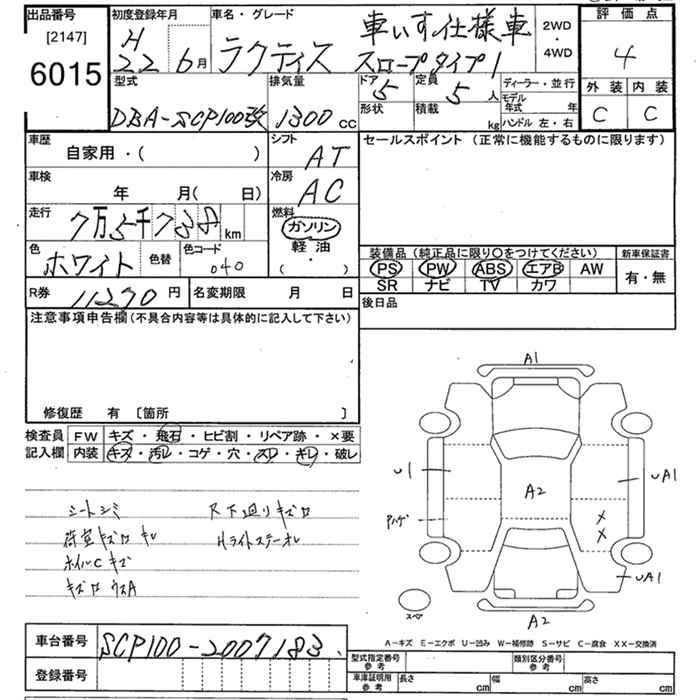 出品番号 初度登録年月 車名・グレード 車いす仕様車 2WD ・ 4WD 評価点
[2147] H
6015 22 6月 ラクティス スロープタイプ1 4
型式 排気量 ドア 5 定員 5人 ディーラー・並行 外装 内装
形状 積載 kg モデル年式 年 C C
DBA-SCP100改 1300 CC ハンドル 左・右
車歴 シフト セールスポイント (正常に機能するものに限ります)
自家用・( ) AT
車検 冷房
年 月( 日) AC
走行 燃料
7万5千738 km ガソリン
軽油
色 色替 色コード ・ 装備品 (純正品に限り〇をつけてください) 新車保証書
ホワイト 040 ( ) PS PW ABS エアB AW 有・無
SR ナビ TV カワ
R券 11270 円 名変期限 月 日 後日品
注意事項申告欄 (不具合内容等は具体的に記入して下さい)
修復歴 有 〔箇所 〕
検査員 FW キズ・飛石・ヒビ割・リペア跡・×要
記入欄 内装 キズ・汚レ・コゲ・穴・スレ・キレ・破レ
シートシミ
荷室キズロ キレ
ホイルC キズ
R下廻リキズロ
Hライトステーオレ
A1
U1
UA1
A2
×
×
UA1
スペア
A2
A-キズ E-エクボ U-凹み W-補修跡 S-サビ C-腐食 XX-交換済
車台番号 SCP100-2007183
登録番号
型式指定番号 参考 類別区分番号 参考
車庫証明用 参考 長さ cm 幅 cm 高さ cm